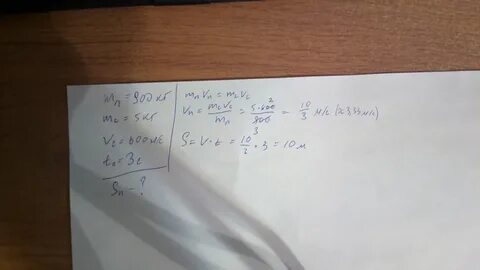 mп = 900 кг
mс = 5 кг
Vс = 600 м/с
tп = 3 с
Sп = ?
mпVп = mсVс
Vп = mсVс / mп = 5·600 2 / 900 3 = 10/3 м/с (≈3,33 м/с)
S = V·t = 10/3 · 3 = 10 м